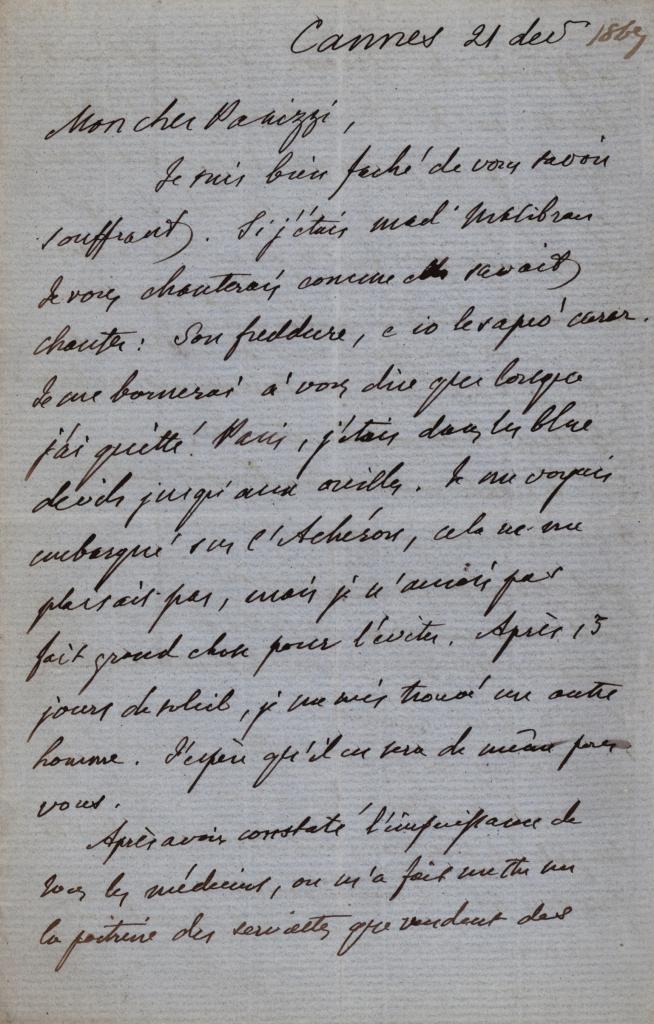 Cannes 21 dec 186
Mon cher Panizzi,
Je suis bien faché de vous savoir
souffrant. Si j'étais mad. Malibran
Je vous chanterais comme elle savait
chanter: Son freddure, e io le saprò curar.
Je me bornerai à vous dire que lorsque
j'ai quitté Paris, j'étais dans les blue
devils jusqu'aux oreilles. Je me voyais
embarqué sur l'Achéron, cela ne me
plaisait pas, mais je n'aurais pas
fait grand chose pour l'éviter. Après 15
jours de soleil, je me suis trouvé un autre
homme. J'espère qu'il en sera de même pour
vous.
Après avoir constaté l'impuissance de
tous les médecins, on m'a fait mettre sur
la poitrine des serviettes que vendent des